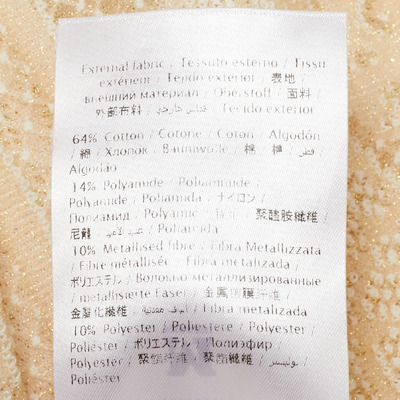 External fabric / Tessuto esterno / Tissu
extérieur / Tejido exterior / 表地 /
Внешний материал / Oberstoff / 面料 /
外部布料 / قماش خارجي / Tecido exterior
64% Cotton / Cotone / Coton / Algodón
/ 綿 / Хлопок / Baumwolle / 棉 / 棉 / قطن /
Algodão
14% Polyamide / Poliammide /
Polyamide / Poliamida / ナイロン /
Полиамид / Polyamid / / 聚醯胺纖維 /
尼龍 / / Poliamida
10% Metallised fibre / Fibra Metallizzata
/ Fibre métallisée / Fibra metalizada /
ポリエステル / Волокно металлизированные
/ metallisierte Faser / 金属镀膜纤维 /
金屬化纖維 / ألياف معدنية / Fibra metalizada
10% Polyester / Poliestere / Polyester /
Poliéster / ポリエステル / Полиэфир /
Polyester / 聚酯纤维 / 聚酯纖維 / بوليستر /
Poliéster